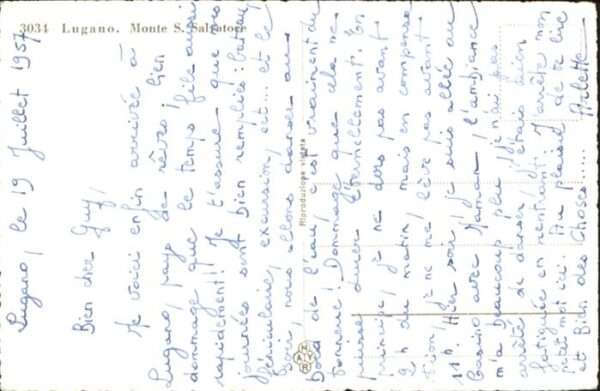 3034 Lugano. Monte S. Salvatore
Riproduzione vietata
Lugano, le 19 Juillet 1957
Bien cher Guy,
Me voici enfin arrivée à
Lugano, pays de rêves! bien
dommage que le temps file aussi
rapidement! Je t'assure que nos
journées sont bien remplies: bateau,
funiculaire, excursion, et... et le
soir, nous allons danser au
bord de l'eau, c'est vraiment du
tonnerre! Dommage que cela ne
puisse durer éternellement. En
principe, je ne dors pas avant
2h du matin, mais en compensa-
tion, je ne me lève pas avant
11h. Hier soir, je suis allée au
Casino avec Maman, l'ambiance
m'a beaucoup plu, je n'ai pas
arrêté de danser, j'étais bien
fatiguée en rentrant. J'arrête mon
petit mot ici. Au plaisir de te lire
et Bien des Choses.....
Arlette